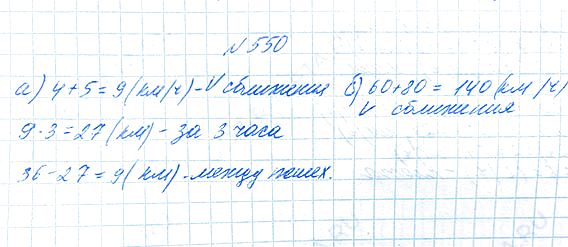 № 550
а) 4+5=9 (км/ч) - V сближения
9·3=27 (км) - за 3 часа
36-27=9 (км) - между пешех.
б) 60+80 = 140 (км/ч)
V сближения